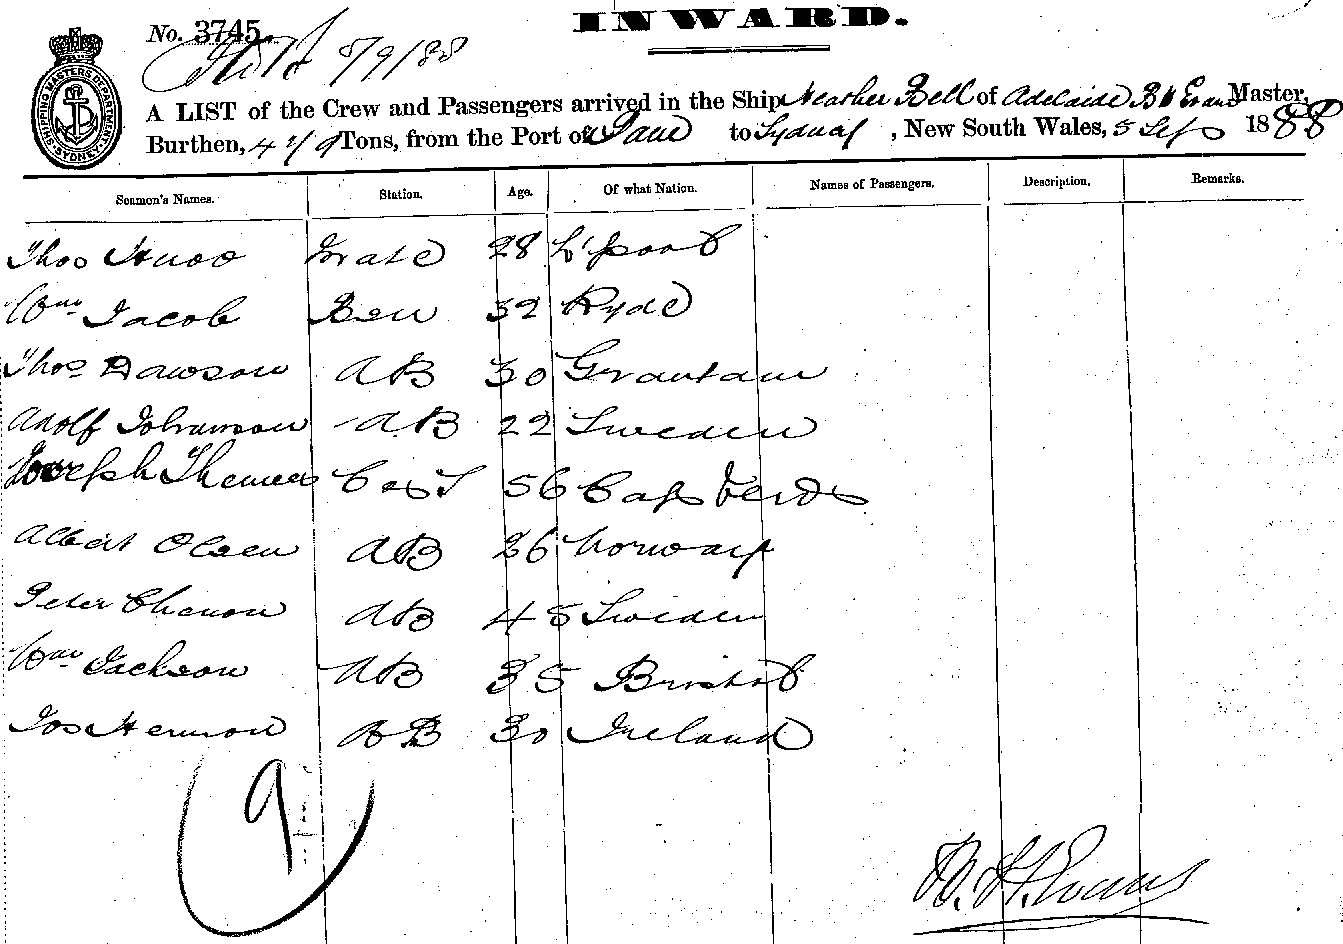 INWARD.
No. 3745
5/9/88
SHIPPING MASTERS DEPARTMENT SYDNEY
A LIST of the Crew and Passengers arrived in the Ship Heather Bell of Adelaide B H Evans Master,
Burthen, 479 Tons, from the Port of to Sydney, New South Wales, 5 Sep 1888
Seamen's Names. Station. Age. Of what Nation. Names of Passengers. Description. Remarks.
Thos Mate 28 L'pool
Wm Jacob 32 Ryde
Thos Dawson AB 30 Grantam
Adolf Johannson A.B 22 Sweden
Joseph Thomas 56 Cape Verds
Albert Olsen AB 26 Norway
Peter AB 45 Sweden
Wm Jackson AB 35 Bristol
Jos AB 30 Ireland
9
B. H. Evans